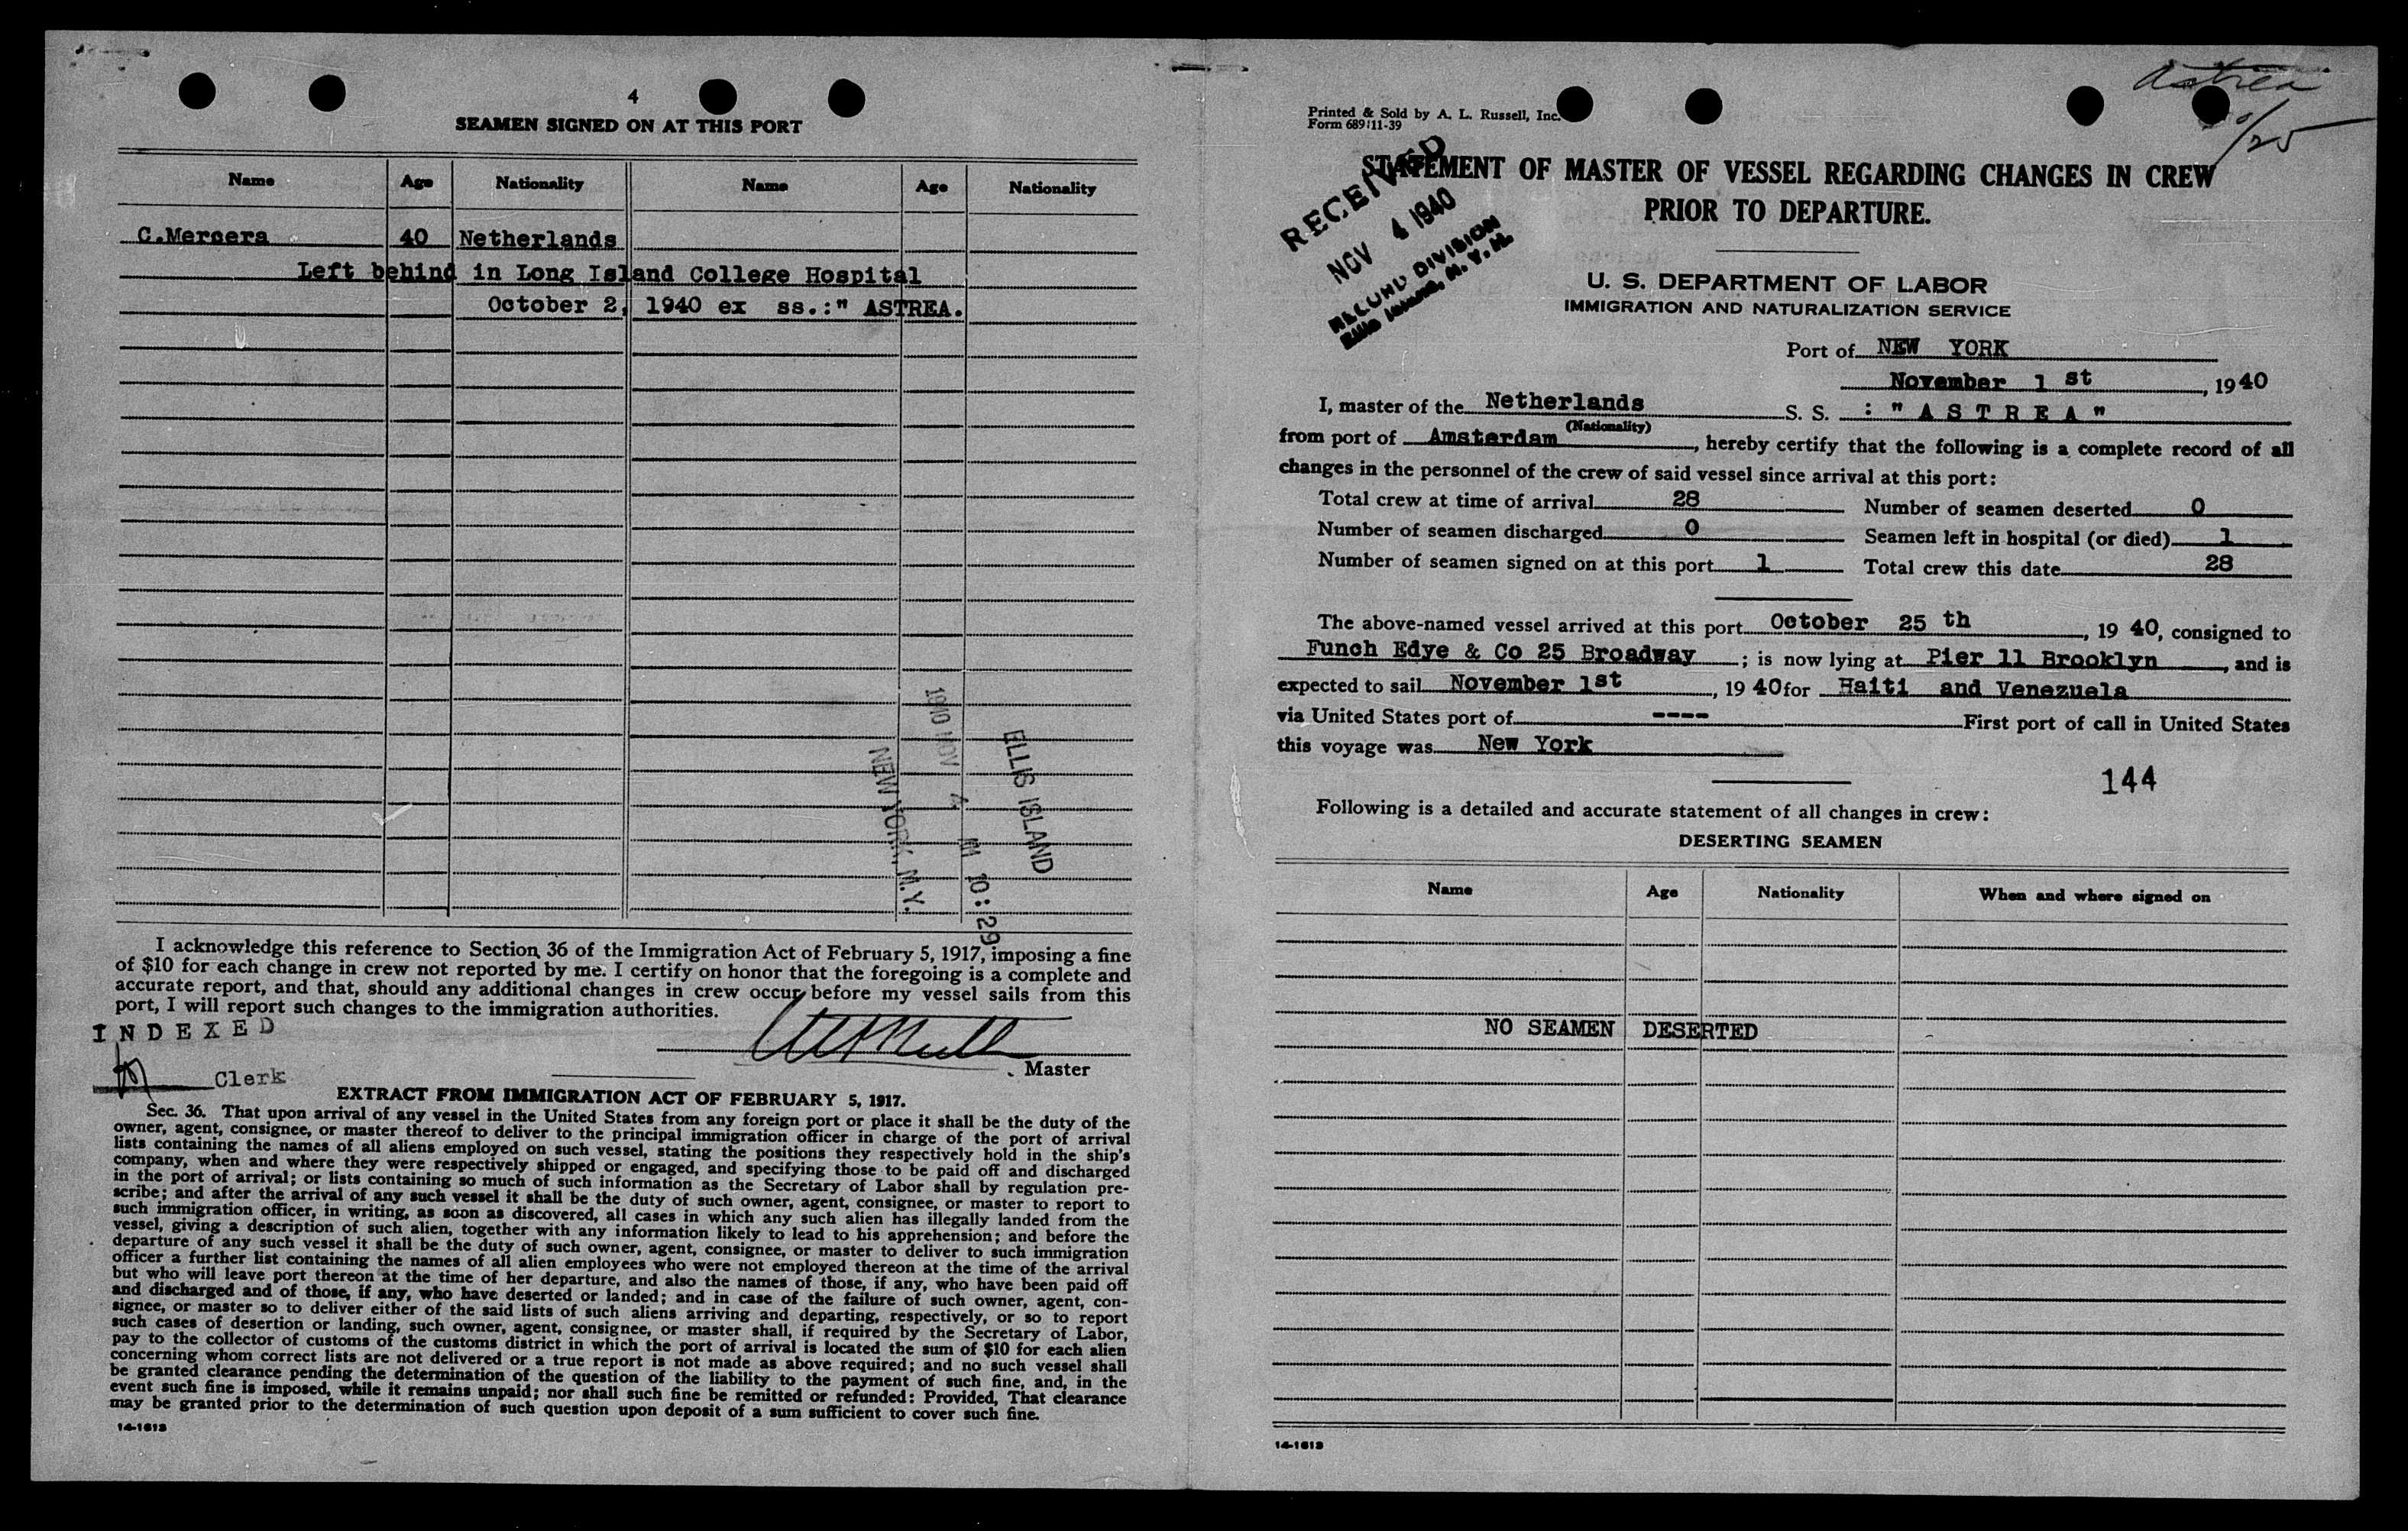 4
SEAMEN SIGNED ON AT THIS PORT
Name Age Nationality Name Age Nationality
C.Mercera 40 Netherlands
Left behind in Long Island College Hospital
October 2, 1940 ex ss.:" ASTREA.
ELLIS ISLAND
1940 NOV 4 10:29
NEW YORK, N.Y.
I acknowledge this reference to Section 36 of the Immigration Act of February 5, 1917, imposing a fine
of $10 for each change in crew not reported by me. I certify on honor that the foregoing is a complete and
accurate report, and that, should any additional changes in crew occur before my vessel sails from this
port, I will report such changes to the immigration authorities.
INDEXED
Master
Clerk
EXTRACT FROM IMMIGRATION ACT OF FEBRUARY 5, 1917.
Sec. 36. That upon arrival of any vessel in the United States from any foreign port or place it shall be the duty of the
owner, agent, consignee, or master thereof to deliver to the principal immigration officer in charge of the port of arrival
lists containing the names of all aliens employed on such vessel, stating the positions they respectively hold in the ship's
company, when and where they were respectively shipped or engaged, and specifying those to be paid off and discharged
in the port of arrival; or lists containing so much of such information as the Secretary of Labor shall by regulation pre-
scribe; and after the arrival of any such vessel it shall be the duty of such owner, agent, consignee, or master to report to
such immigration officer, in writing, as soon as discovered, all cases in which any such alien has illegally landed from the
vessel, giving a description of such alien, together with any information likely to lead to his apprehension; and before the
departure of any such vessel it shall be the duty of such owner, agent, consignee, or master to deliver to such immigration
officer a further list containing the names of all alien employees who were not employed thereon at the time of the arrival
but who will leave port thereon at the time of her departure, and also the names of those, if any, who have been paid off
and discharged and of those, if any, who have deserted or landed; and in case of the failure of such owner, agent, con-
signee, or master so to deliver either of the said lists of such aliens arriving and departing, respectively, or so to report
such cases of desertion or landing, such owner, agent, consignee, or master shall, if required by the Secretary of Labor,
pay to the collector of customs of the customs district in which the port of arrival is located the sum of $10 for each alien
concerning whom correct lists are not delivered or a true report is not made as above required; and no such vessel shall
be granted clearance pending the determination of the question of the liability to the payment of such fine, and, in the
event such fine is imposed, while it remains unpaid; nor shall such fine be remitted or refunded: Provided, That clearance
may be granted prior to the determination of such question upon deposit of a sum sufficient to cover such fine.
14-1613
Astrea
10/25
Printed & Sold by A. L. Russell, Inc.
Form 689/11-39
RECEIVED
NOV 4 1940
RECORD DIVISION
Ellis Island, N.Y.H.
STATEMENT OF MASTER OF VESSEL REGARDING CHANGES IN CREW
PRIOR TO DEPARTURE.
U. S. DEPARTMENT OF LABOR
IMMIGRATION AND NATURALIZATION SERVICE
Port of NEW YORK
November 1 st, 1940
I, master of the Netherlands S. S. : " A S T R E A "
(Nationality)
from port of Amsterdam, hereby certify that the following is a complete record of all
changes in the personnel of the crew of said vessel since arrival at this port:
Total crew at time of arrival 28 Number of seamen deserted 0
Number of seamen discharged 0 Seamen left in hospital (or died) 1
Number of seamen signed on at this port 1 Total crew this date 28
The above-named vessel arrived at this port October 25 th, 19 40, consigned to
Funch Edye & Co 25 Broadway; is now lying at Pier 11 Brooklyn, and is
expected to sail November 1st, 19 40 for Haiti and Venezuela
via United States port of ---- First port of call in United States
this voyage was New York
144
Following is a detailed and accurate statement of all changes in crew:
DESERTING SEAMEN
Name Age Nationality When and where signed on
NO SEAMEN DESERTED
14-1613